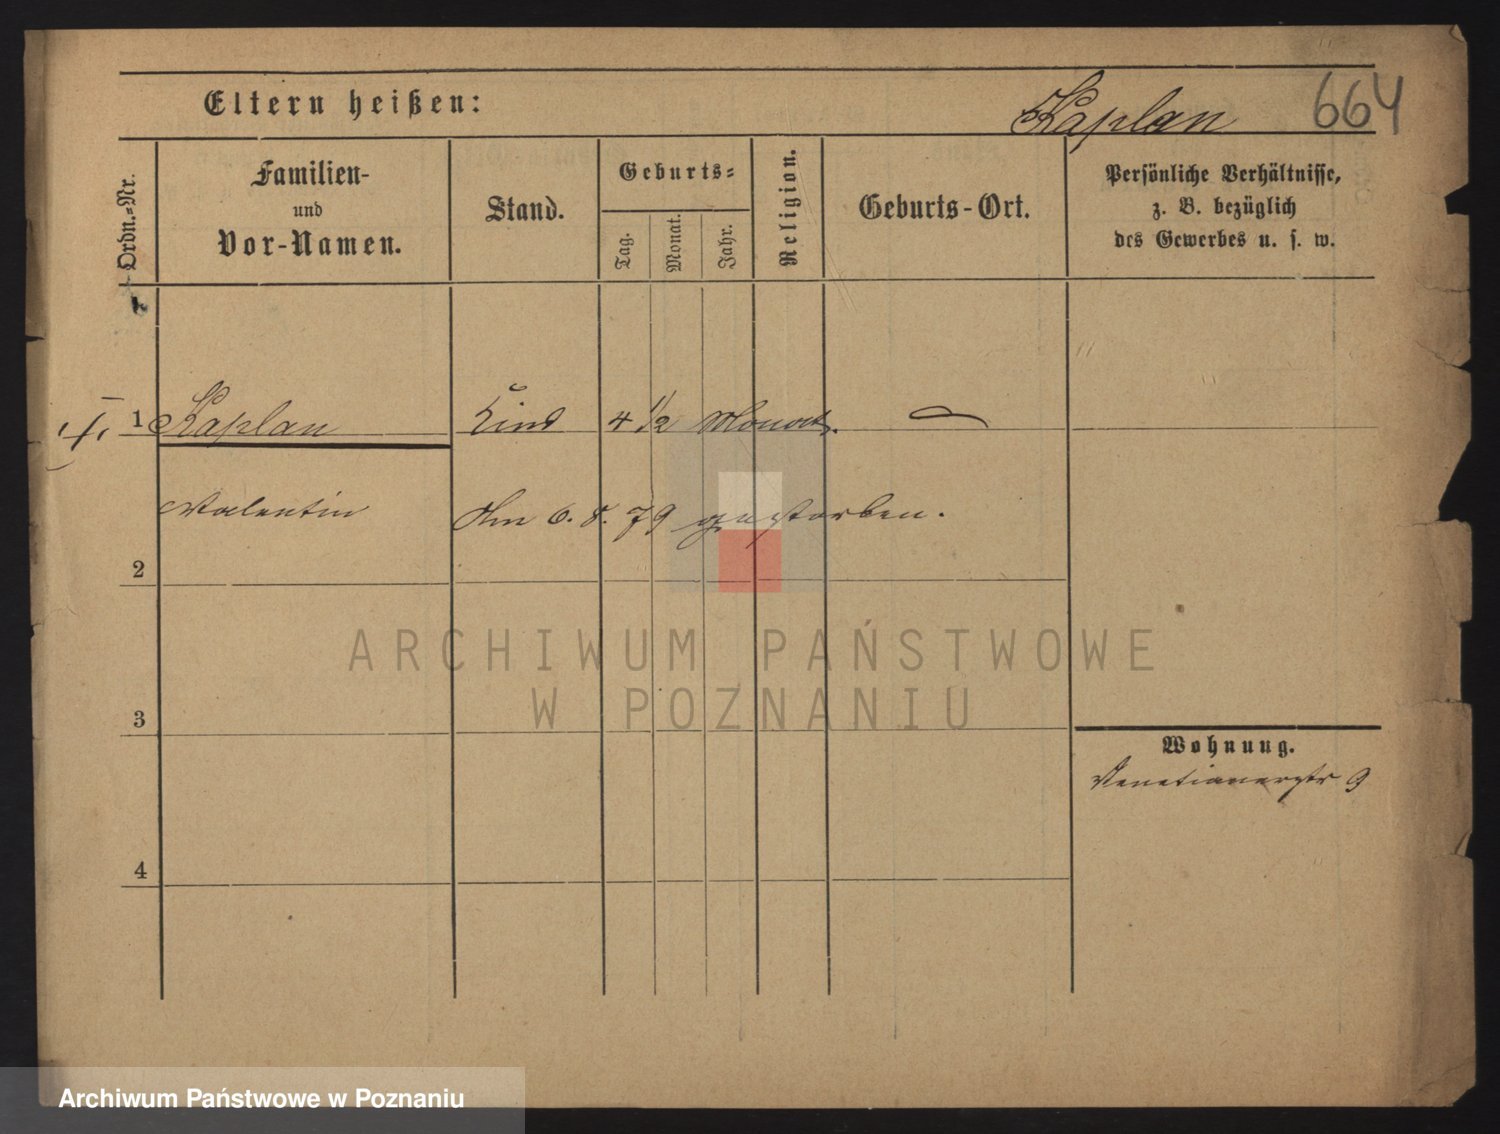 Eltern heißen:
Kaplan
664
Ordn.-Nr.
Familien-
und
Vor-Namen.
Stand.
Geburts-
Tag.
Monat.
Jahr.
Religion.
Geburts-Ort.
Persönliche Verhältnisse,
z. B. bezüglich
des Gewerbes u. s. w.
1 Kaplan Kind 4 1/2 Monat.
Valentin Am 6. 8. 79 gestorben.
2
ARCHIWUM PAŃSTWOWE
W POZNANIU
3
Wohnung.
Venetianerstr 9
4
Archiwum Państwowe w Poznaniu